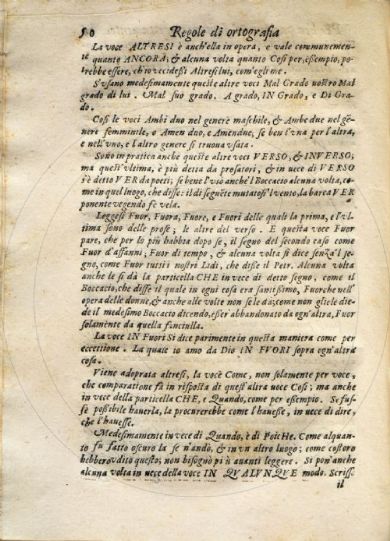 50 Regole di ortografia
La voce ALTRESI è anch'ella in opera, e vale communemente
quanto ANCORA; & alcuna volta quanto Cosi per, esempio, potrebbe
essere, ch'io vedessi Altresi lui, com'egli me.
S'usano medesimamente queste altre voci Mal Grado vostro Mal
grado di lui. Mal suo grado. A grado, IN Grado, e Di Grado.
Cosi le voci Ambi duo nel genere maschile, & Ambe due nel genere
femminile, o Amen duo, e Amendue, se ben l'una per l'altra,
e nell'uno, e l'altro genere si truova usata.
Sono in pratica anche queste altre voci VERSO, & INVERSO;
ma quest'ultima, è più detta da prosatori, & in vece di VERSO
s'è detto VER da poeti; se bene l'usò anche'l Boccaccio alcuna volta, come
in quel luogo, che disse: il dì seguente mutatosi'l vento, la barca VER
ponente vegendo fè vela.
Leggesi Fuor, Fuora, Fuore, e Fuori delle quali la prima, e l'ultima
sono delle prose; le altre del verso. E questa voce Fuor
pare, che per lo più habbia dopo se, il segno del secondo caso come
Fuor d'affanni; Fuor di tempo, & alcuna volta si dice senza'l segno,
come Fuor tutti i nostri Lidi, che disse il Petr. Alcuna volta
anche le si dà la particella CHE in vece di detto segno, come il
Boccaccio, che disse il quale in ogni cosa era santissimo, Fuorche nell'
opera delle donne, & anche alle volte non se le dà; come non gliele diede
il medesimo Boccaccio dicendo, esser abbandonato da ogn'altra, Fuor
solamente da quella fanciulla.
La voce IN Fuori Si dice parimente in questa maniera come per
eccettione. La quale io amo da Dio IN FUORI sopra ogn'altra
cosa.
Viene adoprata altresi, la voce Come, non solamente per voce,
che comparatione fà in risposta di quest'altra voce Cosi; ma anche
in vece della particella CHE, e Quando, come per esempio. Se fusse
possibile haverla, la procurerebbe come l'havesse, in vece di dire,
che l'havesse.
Medesimamente in vece di Quando, è di Poiche. Come alquanto
fu fatto oscuro là se n'andò, & in un altro luogo; come costoro
hebbero udito questo; non bisognò più avanti leggere. Si pon'anche
alcuna volta in vece della voce IN QUALUNQUE modo. Scrisse
il